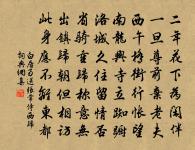 二年花下為閑伴
一旦尊前棄老夫
西午橋街行悵望
南龍興寺立踟躕
洛城久住留情否
省騎重歸稱意無
出鎮歸朝但相訪
此身應不離東都
白居易送張常侍西歸
詞典網集